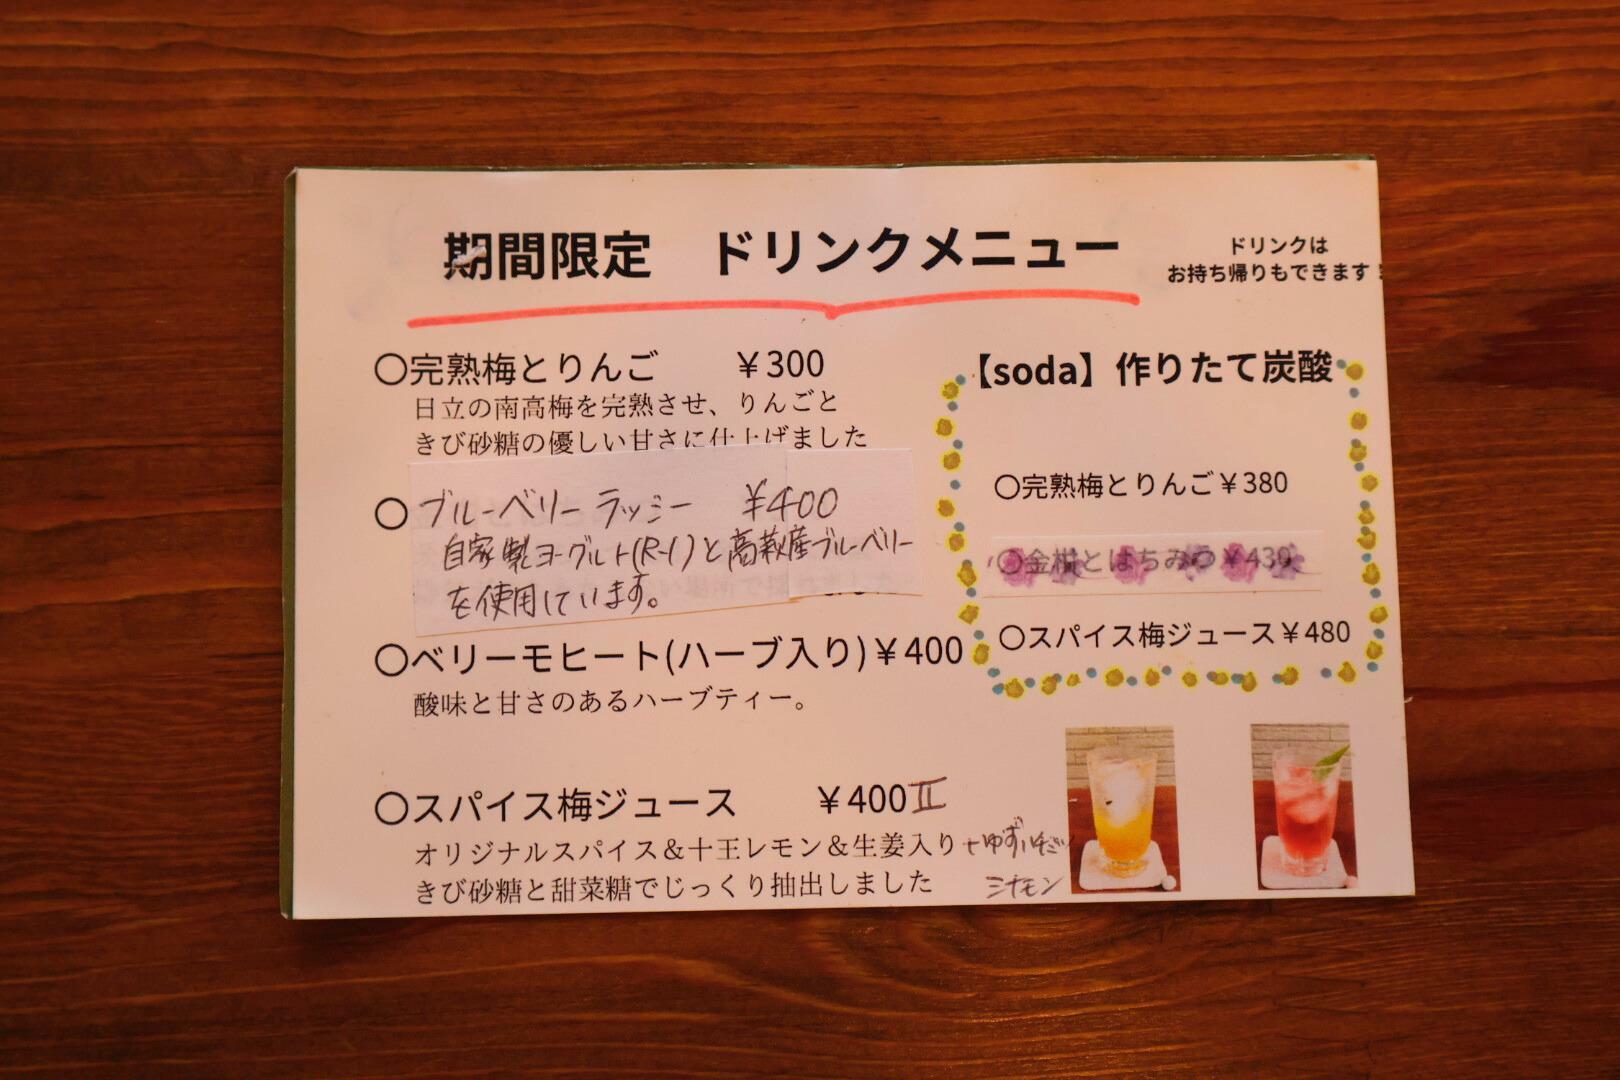 期間限定　ドリンクメニュー
ドリンクは
お持ち帰りもできます！
〇完熟梅とりんご　￥300
日立の南高梅を完熟させ、りんごと
きび砂糖の優しい甘さに仕上げました
〇ブルーベリー ラッシー　¥400
自家製ヨーグルト(R-1)と高萩産ブルーベリー
を使用しています。
〇ベリーモヒート(ハーブ入り)￥400
酸味と甘さのあるハーブティー。
〇スパイス梅ジュース　￥400
オリジナルスパイス＆十王レモン＆生姜入り
きび砂糖と甜菜糖でじっくり抽出しました
シナモン
【soda】作りたて炭酸
〇完熟梅とりんご￥380
〇金柑とはちみつ￥430
〇スパイス梅ジュース￥480